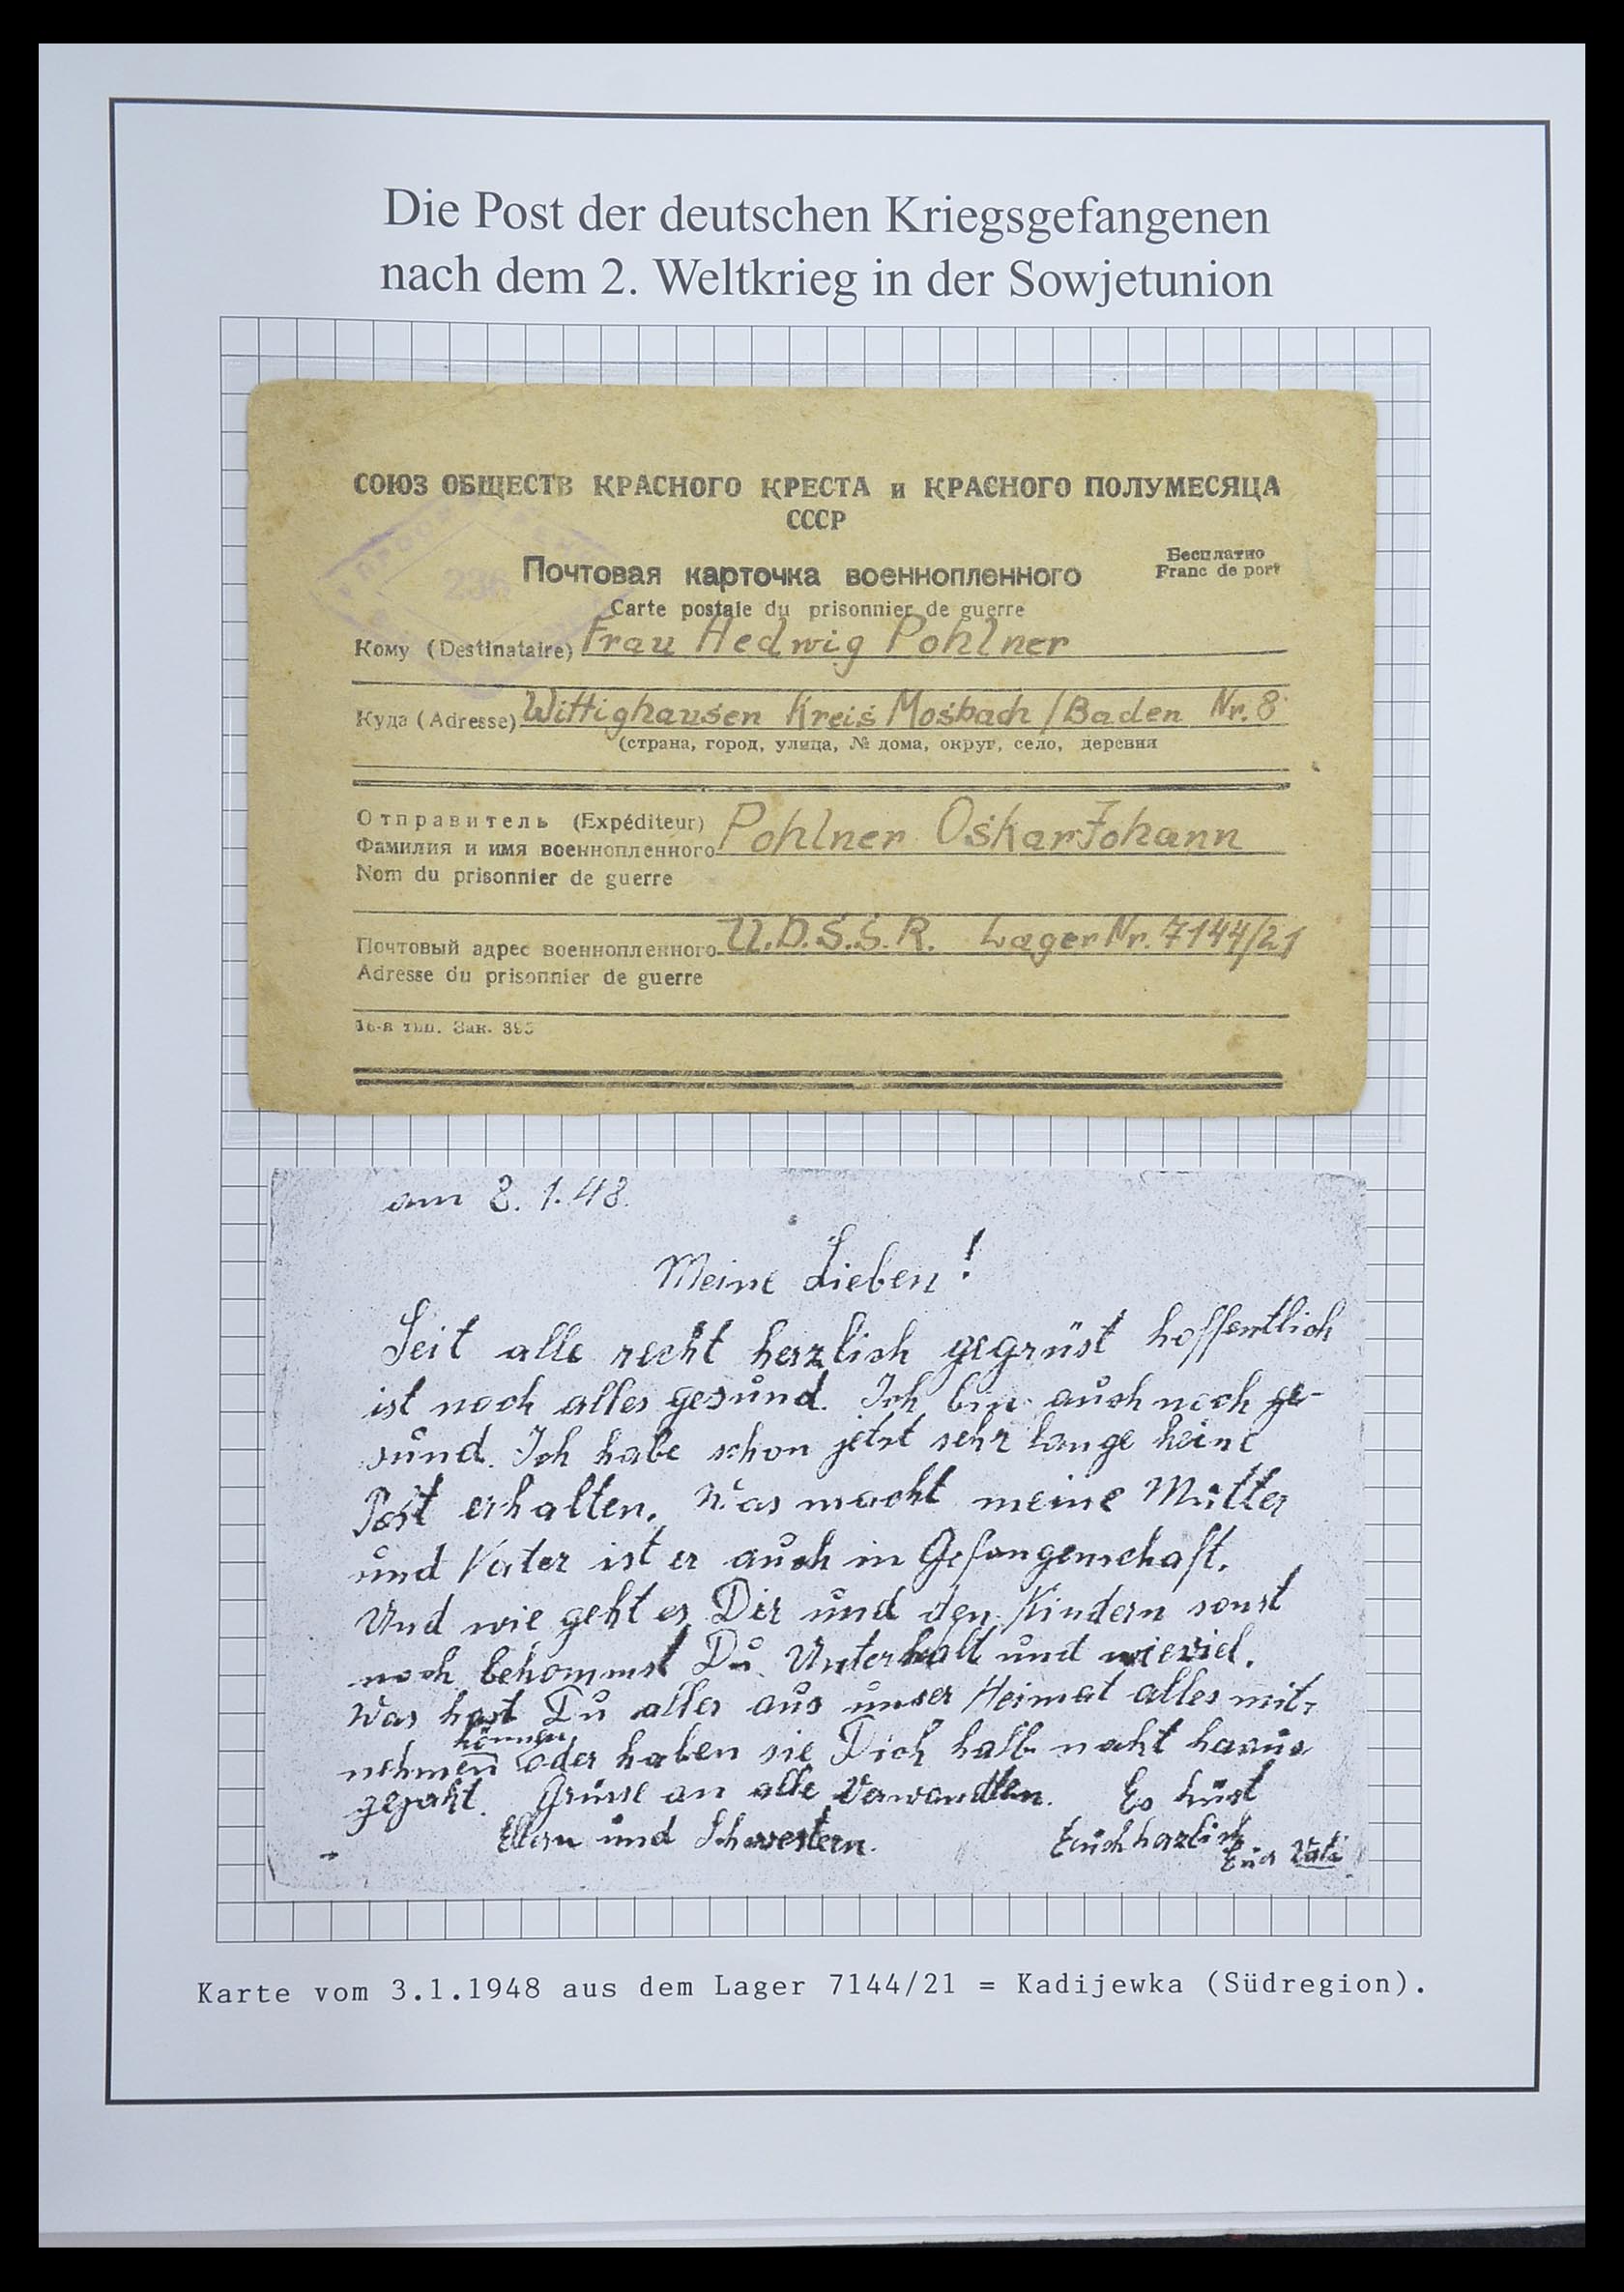 Die Post der deutschen Kriegsgefangenen
nach dem 2. Weltkrieg in der Sowjetunion
СОЮЗ ОБЩЕСТВ КРАСНОГО КРЕСТА и КРАСНОГО ПОЛУМЕСЯЦА
СССР
Бесплатно
Franc de port
Почтовая карточка военнопленного
Carte postale du prisonnier de guerre
236
Кому (Destinataire) Frau Hedwig Pohlner
Куда (Adresse) Wittighausen Kreis Mosbach /Baden Nr. 8
(страна, город, улица, № дома, округ, село, деревня
Отправитель (Expéditeur)
Фамилия и имя военнопленного Pohlner Oskar Johann
Nom du prisonnier de guerre
Почтовый адрес военнопленного U.D.S.S.R. Lager Nr. 7144/21
Adresse du prisonnier de guerre
16-я тип. Зак. 395
am 3. 1. 48.
Meine Lieben!
Seit alle recht herzlich gegrüst hoffentlich
ist noch alles gesund. Ich bin auch noch ge-
sund. Ich habe schon jetzt sehr lange keine
Post erhalten. Was macht meine Mutter
und Vater ist er auch in Gefangenschaft.
Und wie geht es Dir und den Kindern sonst
noch bekommst Du Unterhalt und wieviel.
Was hast Du alles aus unser Heimat alles mit-
nehmen können oder haben sie Dich halb nakt haraus
gejakt. Grüsse an alle Verwandten. Es küst
Eltern und Schwestern. Euch herzlich
Euer Vati
Karte vom 3.1.1948 aus dem Lager 7144/21 = Kadijewka (Südregion).